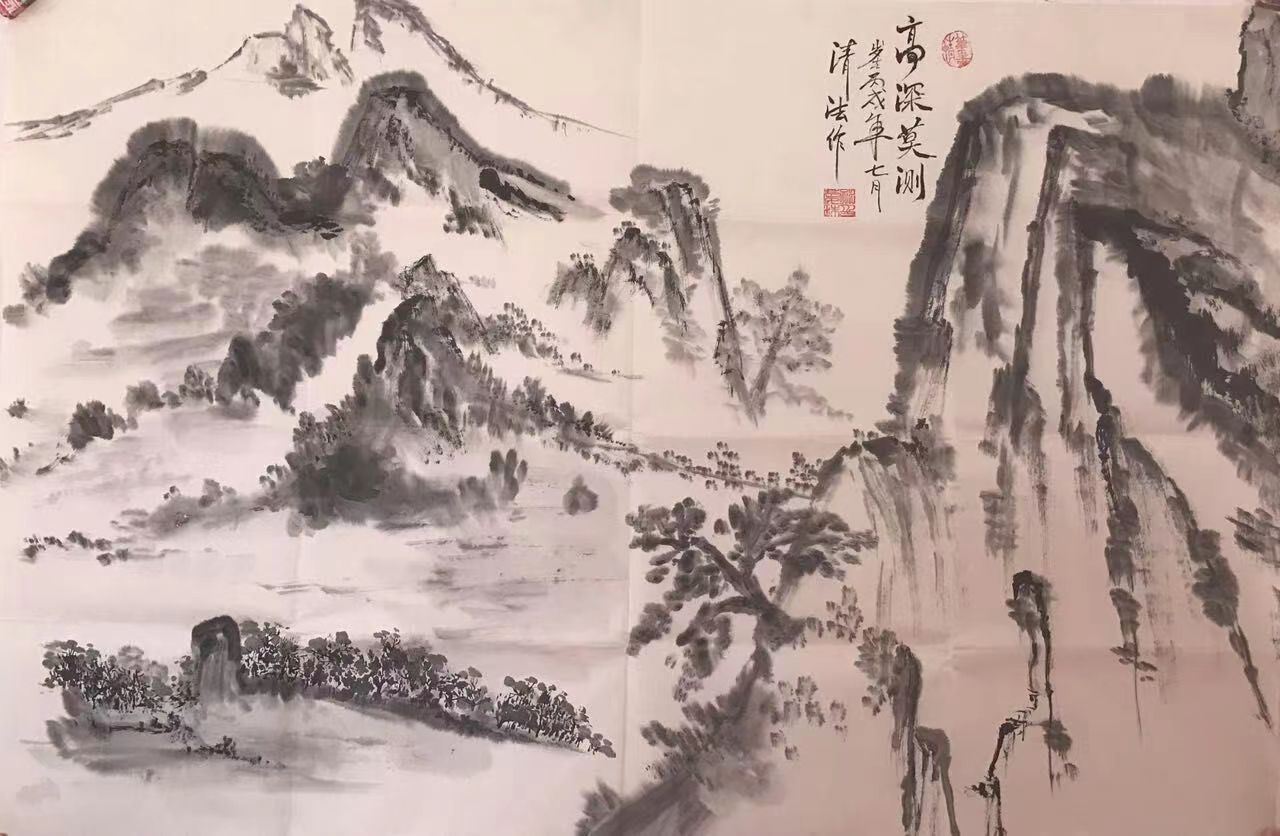 高深莫测
岁丙戌年七月
清法作